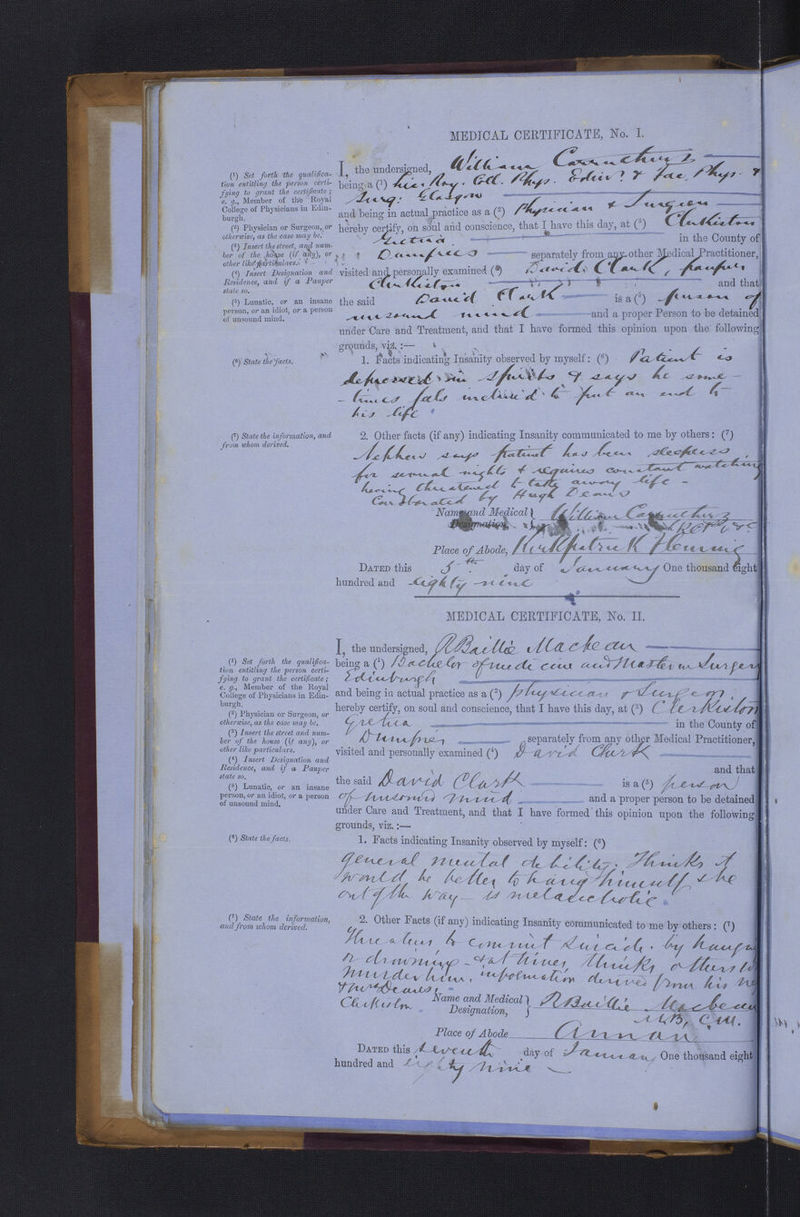 MEDICAL CERTIFICATE, No. I.
(1) Set forth the qualifica-
tion entitling the person certi-
fying to grant the certificate;
e. g., Member of the Royal
College of Physicians in Edin-
burgh.
(2) Physician or Surgeon, or
otherwise, as the case may be.
(3) Insert the street, and num-
ber of the house (if any), or
other like particulars.
(4) Insert Designation and
Residence, and if a Pauper
state so.
(5) Lunatic, or an insane
person, or an idiot, or a person
of unsound mind.
(6) State the facts.
(7) State the information, and
from whom derived.
I, the undersigned, William Carruthers
being a (1) Roy. Coll. Phys. Edinr. & Fac. Phys. &
Surg: Glasgow
and being in actual practice as a (2) Physician & Surgeon
hereby certify, on soul and conscience, that I have this day, at (3) Clerkiston
Gretna in the County of
Dumfries separately from any other Medical Practitioner,
visited and personally examined (4) David Clark, pauper
Clerkiston and that
the said David Clark is a (5) person of
unsound mind and a proper Person to be detained
under Care and Treatment, and that I have formed this opinion upon the following
grounds, viz.:—
1. Facts indicating Insanity observed by myself: (6) Patient is
depressed in spirits & says he some-
-times fals inclined to put an end to
his life
2. Other facts (if any) indicating Insanity communicated to me by others: (7)
Nephew says patient has been sleepless
for several nights & requires constant watching
having threatened to take away life -
Corroborated by Hugh Deans
Name and Medical } William Carruthers
Designation,
Place of Abode, Kirkpatrick Fleming
DATED this 5th day of January One thousand eight
hundred and eighty nine
MEDICAL CERTIFICATE, No. II.
(1) Set forth the qualifica-
tion entitling the person certi-
fying to grant the certificate;
e. g., Member of the Royal
College of Physicians in Edin-
burgh.
(2) Physician or Surgeon, or
otherwise, as the case may be.
(3) Insert the street and num-
ber of the house (if any), or
other like particulars.
(4) Insert Designation and
Residence, and if a Pauper
state so.
(5) Lunatic, or an insane
person, or an idiot, or a person
of unsound mind.
(6) State the facts.
(7) State the information,
and from whom derived.
I, the undersigned, R Baillie Macbean
being a (1) Bachelor of medicine and Master in Surgery
Edinburgh
and being in actual practice as a (2) physician & Surgeon
hereby certify, on soul and conscience, that I have this day, at (3) Clerkiston
Gretna in the County of
Dumfries separately from any other Medical Practitioner,
visited and personally examined (4) David Clark
and that
the said David Clark is a (5) person
of unsound mind and a proper person to be detained
under Care and Treatment, and that I have formed this opinion upon the following
grounds, viz.:—
1. Facts indicating Insanity observed by myself: (6)
general mental debility. Thinks it
would be better to hang himself & be
out of the way - is melancholic.
2. Other Facts (if any) indicating Insanity communicated to me by others: (7)
Threatens to commit suicide by
or drowning - & at times thinks others
murder him, information derived from his
& Mrs Deans,
Clerkiston Name and Medical } R Baillie Macbean
Designation, M.B, C.M.
Place of Abode Annan
DATED this seventh day of January One thousand eight
hundred and eighty nine